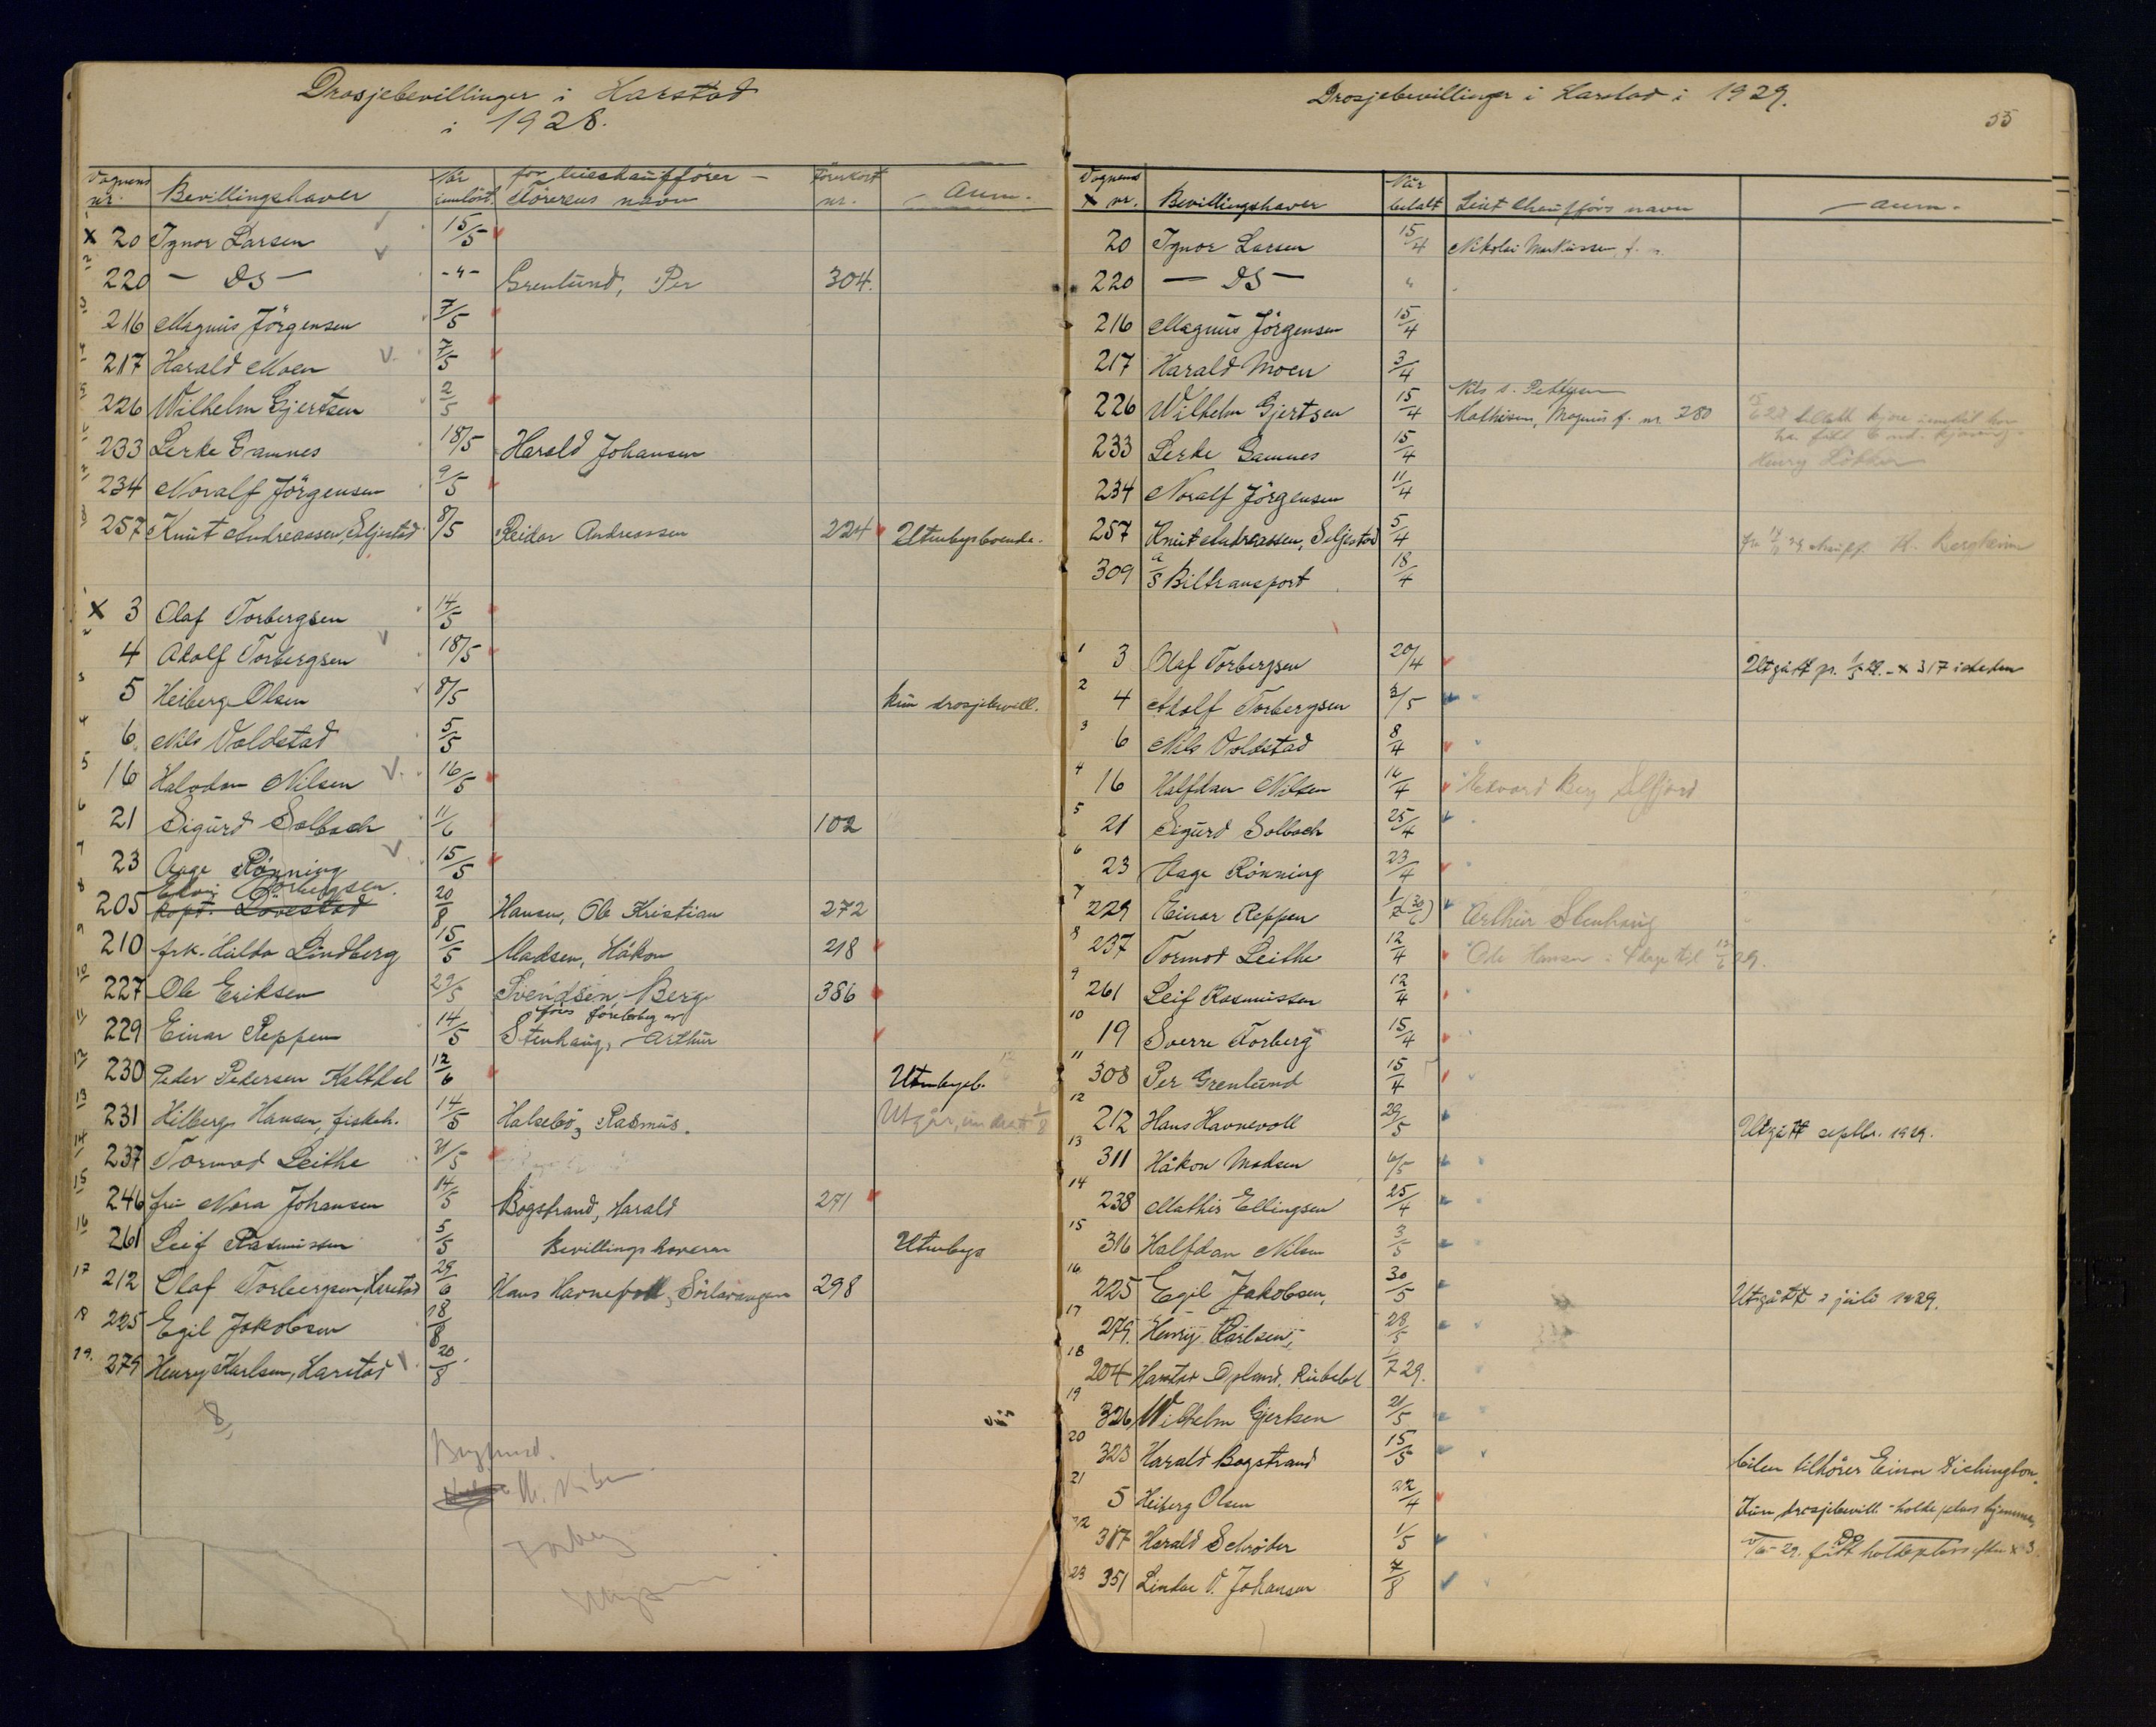 Drosjebevillinger i Harstad
i 1928.
Vognens nr. Bevillingshaver Når innlöst. for leiechaufförer – Förerens navn Förerkort nr. – Anm. –
1 x 20 Ignor Larsen 15/5
2 220 — DS — -"- Grenlund, Per 304.
3 216 Magnus Jörgensen 7/5
4 217 Harald Moen 7/5
5 226 Wilhelm Gjertsen 2/5
6 233 Lerke Gamnes 18/5 Harald Johansen
7 234 Noralf Jörgensen 9/5
8 257 Knut Andreassen, Seljestad 8/5 Reidar Andreassen 224 Utenbysboende.
1 x 3 Olaf Torbergsen 14/5
2 4 Adolf Torbergsen 18/5
3 5 Heiberg Olsen 8/5 kun drosjebevill.
4 6 Nils Voldstad 5/5
5 16 Halvdan Nilsen 16/5
6 21 Sigurd Solbach 11/6 102
7 23 Aage Rönning 15/5
Edvin Torbergsen.
8 205 kapt. Lövestad 20/8 Hansen, Ole Kristian 272
9 210 frk. Hilda Lindberg 15/5 Madsen, Håkon 218
10 227 Ole Eriksen 29/5 Svendsen, Berg 386
föres foreløbig av
11 229 Einar Reppen 14/5 Stenhaug, Arthur
12 230 Peder Pedersen Kalthel 12/6 Utenbysb.
13 231 Hilberg Hansen, fiskeh. 14/5 Halsebö, Rasmus. Utgår, 1/8
14 237 Tormod Leithe 21/5
15 246 fru Nora Johansen 14/5 Bogstrand, Harald 271
16 261 Leif Rasmussen 5/5 Bevillingshaveren Utenbys
17 212 Olaf Torbergsen, Harstad 29/6 Hans Havnevoll, Sörlavangen 298
18 225 Egil Jakobsen 18/8
19. 279 Henry Karlsen, Harstad 20/8
8
Torberg
Drosjebevillinger i Harstad i 1929.
55
Vognens x nr. Bevillingshaver Når betalt Leiet chaufförs navn – Anm. –
20 Ignor Larsen 15/4 Nikolai Markussen, f. n.
220 — DS — "
216 Magnus Jörgensen 15/4
217 Harald Moen 3/4
Nils s. Pettersen
226 Wilhelm Gjertsen 15/4 Mathisen, Magnus f. nr. 380
233 Lerke Gamnes 15/4 Henry
234 Noralf Jörgensen 11/4
257 Knut Andreassen, Seljestad 5/4 fra 14/11 29 chauff. K. Bergheim
309 A/S Biltransport 18/4
1 3 Olaf Torbergsen 20/4 Utgått pr. 1/5 29. - x 317 isteden
2 4 Adolf Torbergsen 3/5
3 6 Nils Voldstad 8/4
4 16 Halfdan Nilsen 16/4 Edvard Berg Selfjord
5 21 Sigurd Solbach 25/4
6 23 Aage Rönning 23/4
7 229 Einar Reppen 1/2 (30/6) Arthur Stenhaug
8 237 Tormod Leithe 12/4 Ole Hansen i 4 dage til 12/6 29.
9 261 Leif Rasmussen 12/4
10 19 Sverre Torberg 15/4
11 308 Per Grenlund 15/4
12 212 Hans Havnevoll 29/5 Utgått septbr. 1929.
13 311 Håkon Madsen 6/5
14 238 Mathis Ellingsen 25/4
15 316 Halfdan Nilsen 3/5
16 225 Egil Jakobsen, 30/5 Utgått i juli 1929.
17 279. Henry Karlsen, 28/5
18 204 Harstad Opland. Rutebil 7 29.
19 326 Wilhelm Gjertsen 21/5
20 323 Harald Bogstrand 15/5 bilen tilhører Einar Dichington.
21 5 Heiberg Olsen 22/4 kun drosjebevill. - holdeplass hjemme,
22 317 Harald Schröder 1/5 29. fått holdeplass efter x 3
23 351 Lindor V. Johansen 7/8